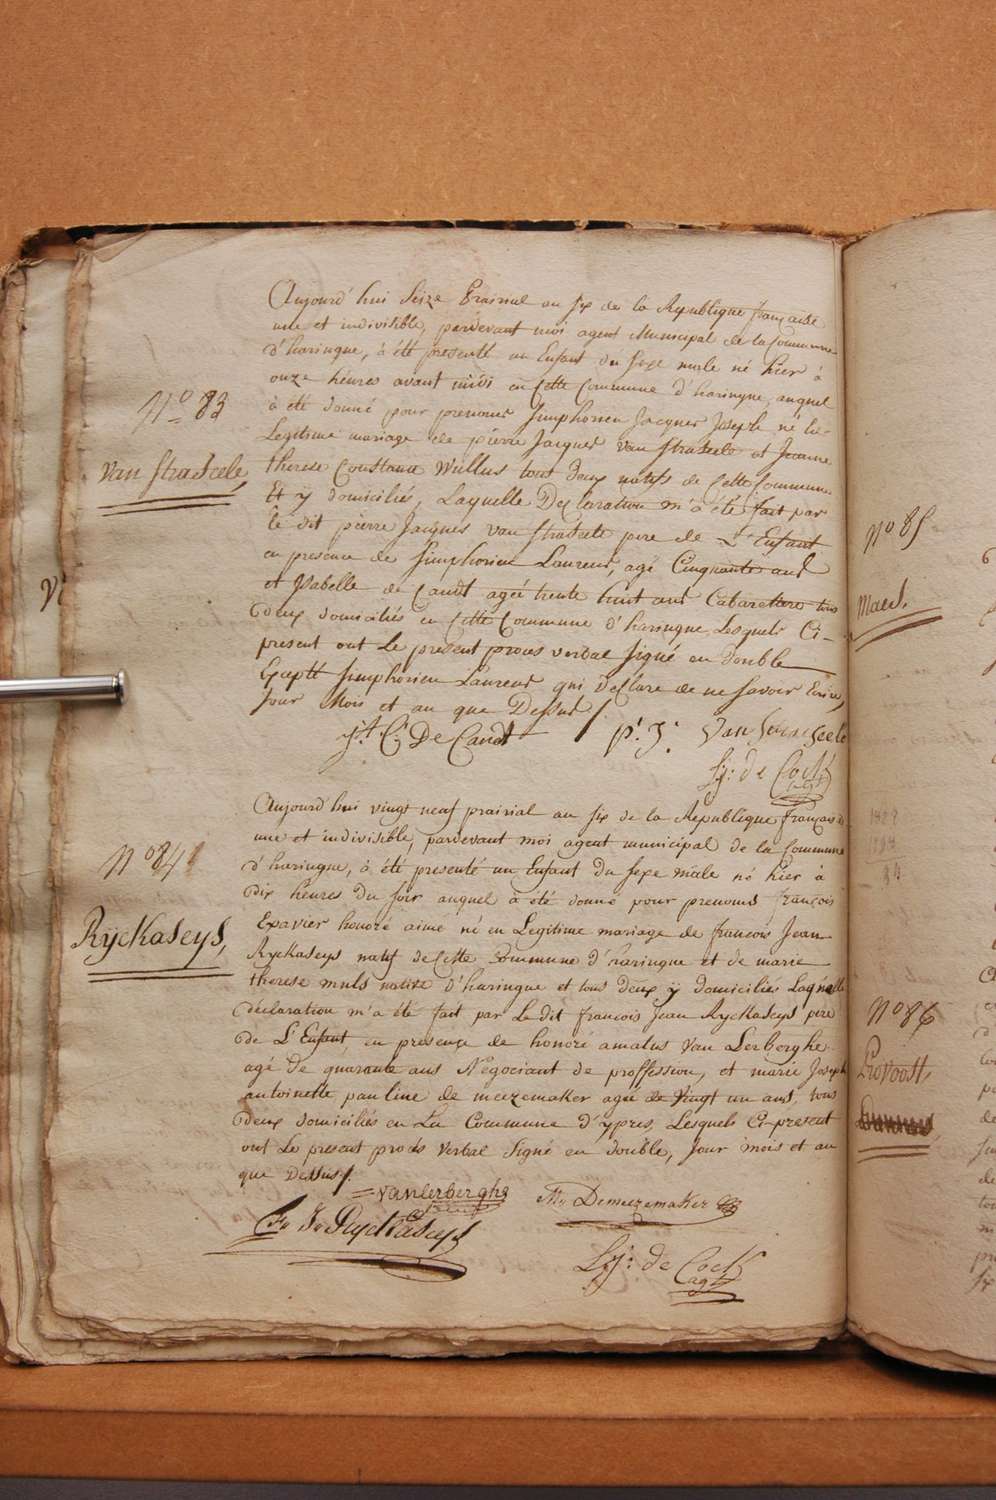 Aujourd'hui Seize Prairial an six de la Republique française
une et indivisible, pardevant moi agent Municipal de la Commune
d'haringue, à été presenté un Enfant du sexe male né hier à
onze heures avant midi en Cette Commune d'haringue, auquel
à été donné pour prenoms Simphorien Jacques Joseph né en
Legitime mariage de pierre Jacques van Straseele et Jeanne
therese Constance Willus tous Deux natifs de Cette Commune
Et ÿ domiciliés, Laquelle Declaration m'a été fait par
Le dit pierre Jacques van Straseele pere de L'Enfant
en presence de Simphorien Laureud, agé Cinquante ans
et Isabelle de Candt ageé trente huit ans Cabaretiere tous
deux domiciliés en Cette Commune d'haringue Lesquels Ci-
present ont Le present proces verbal signé en double
Exepté Simphorien Laureud qui Declare de ne savoir Ecrire,
jour Mois et an que Dessus /.
N° 83
Van Straseele,
De Candt
p: J: Van Straeseele
Sy: de Cock
agt
Aujourd'hui vingt neuf prairial an six de la Republique française
une et indivisible, pardevant moi agent municipal de la Commune
d'haringue, à été presenté un Enfant du sexe mâle né hier à
Dix heures du soir auquel à été donné pour prenoms françois
Exavier honoré aimé né en Legitime mariage de francois Jean
Ryckaseys natif de Cette Commune d'haringue et de marie
therese muls native d'haringue et tous deux ÿ domiciliés Laquelle
déclaration m'a été fait par Le dit francois Jean Ryckaseys pere
de L'Enfant en presence de honoré amatus van Lerberghe
agé de quarante ans Négociant de proffession, et marie Joseph
antoinette pauline de meezemaker ageé de vingt un ans, tous
deux domiciliés en La Commune d'ypres, Lesquels Ci-present
ont Le present procès verbal Signé en double, Jour mois et an
que Dessus /.
N° 84
Ryckaseys,
vanlerberghe
Demeezemaker
Fr Jn Ryckaseys
Sy: de Cock
agt
N° 85
Maes,
N° 86
Provoost,